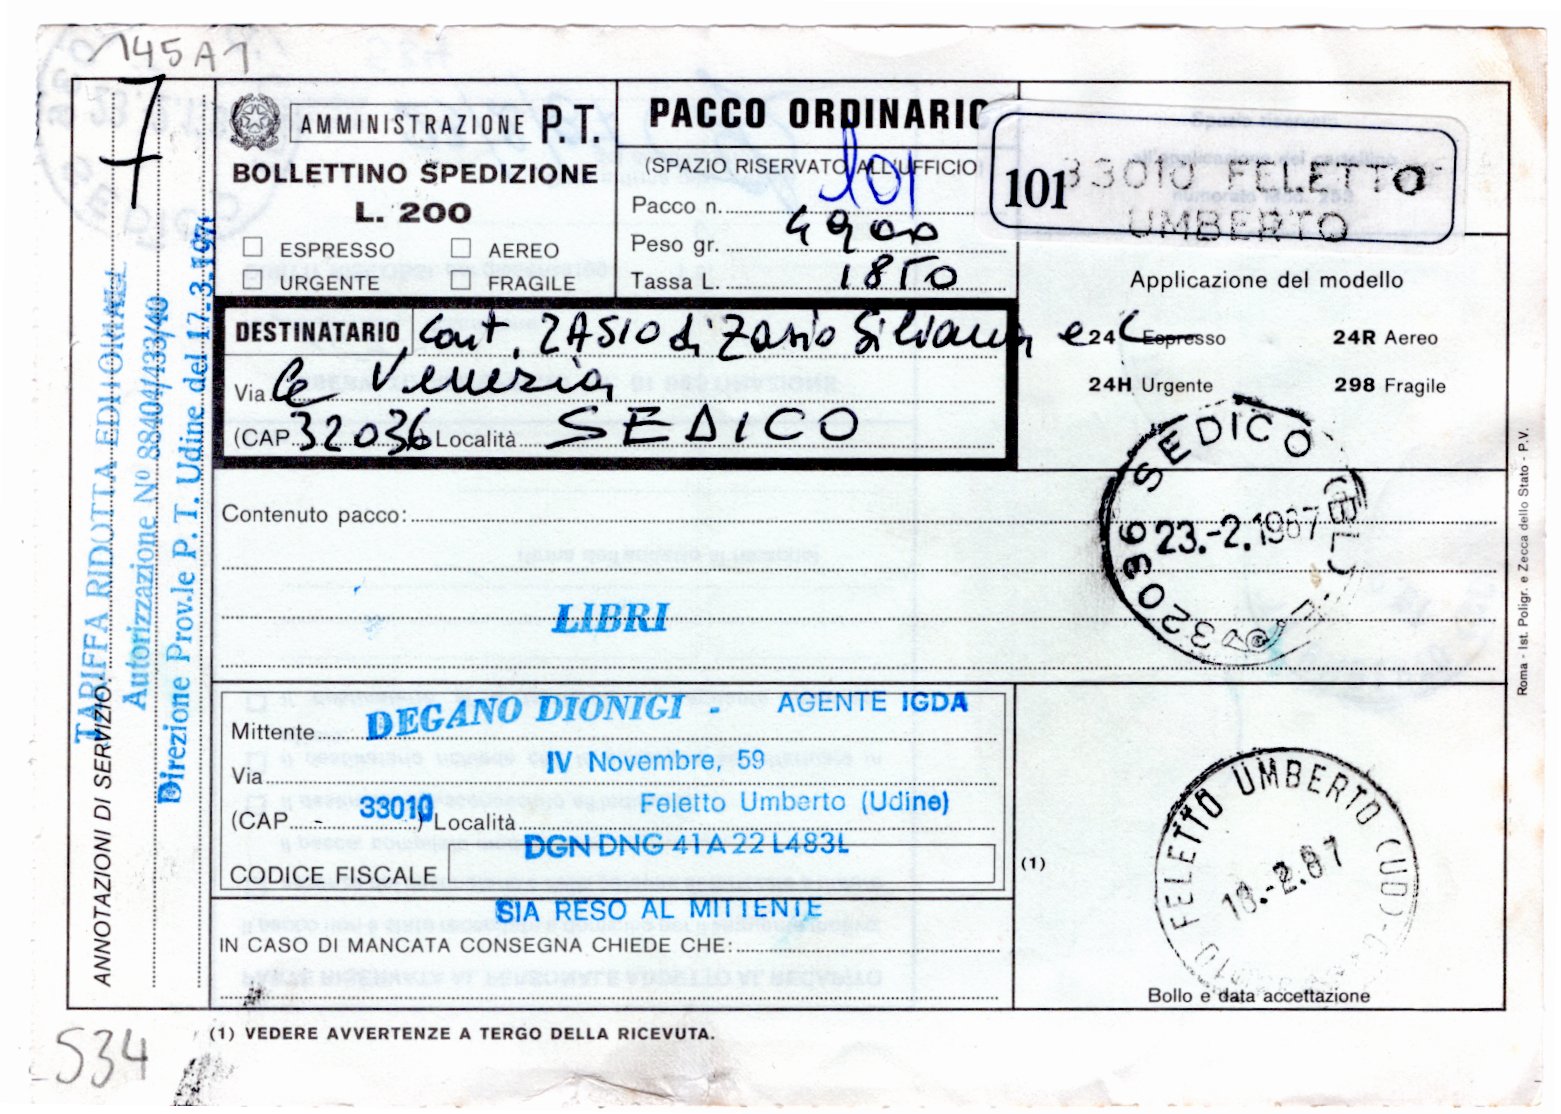 145A1
7
AMMINISTRAZIONE P.T.
BOLLETTINO SPEDIZIONE
L. 200
ESPRESSO AEREO
URGENTE FRAGILE
PACCO ORDINARIO
(SPAZIO RISERVATO ALL'UFFICIO)
Pacco n. 101
Peso gr. 4900
Tassa L. 1850
101 33010 FELETTO
UMBERTO
Applicazione del modello
24 Espresso 24R Aereo
24H Urgente 298 Fragile
DESTINATARIO Cart. ZASIO di Zasio Siliana e C
Via Venezia
(CAP 32036) Località SEDICO
32036 SEDICO (BL)
23.-2.1987
Contenuto pacco:
LIBRI
Mittente DEGANO DIONIGI - AGENTE IGDA
Via IV Novembre, 59
(CAP 33010) Località Feletto Umberto (Udine)
DGN DNG 41A22 L483L
CODICE FISCALE
(1)
SIA RESO AL MITTENTE
IN CASO DI MANCATA CONSEGNA CHIEDE CHE:
FELETTO UMBERTO (UD)
18.-2.87
Bollo e data accettazione
(1) VEDERE AVVERTENZE A TERGO DELLA RICEVUTA.
534
TARIFFA RIDOTTA EDITORIALE
Autorizzazione Nº 88404/433/40
Direzione Prov.le P. T. Udine del 17.3.1971
ANNOTAZIONI DI SERVIZIO:
Roma - Ist. Poligr. e Zecca dello Stato - P.V.